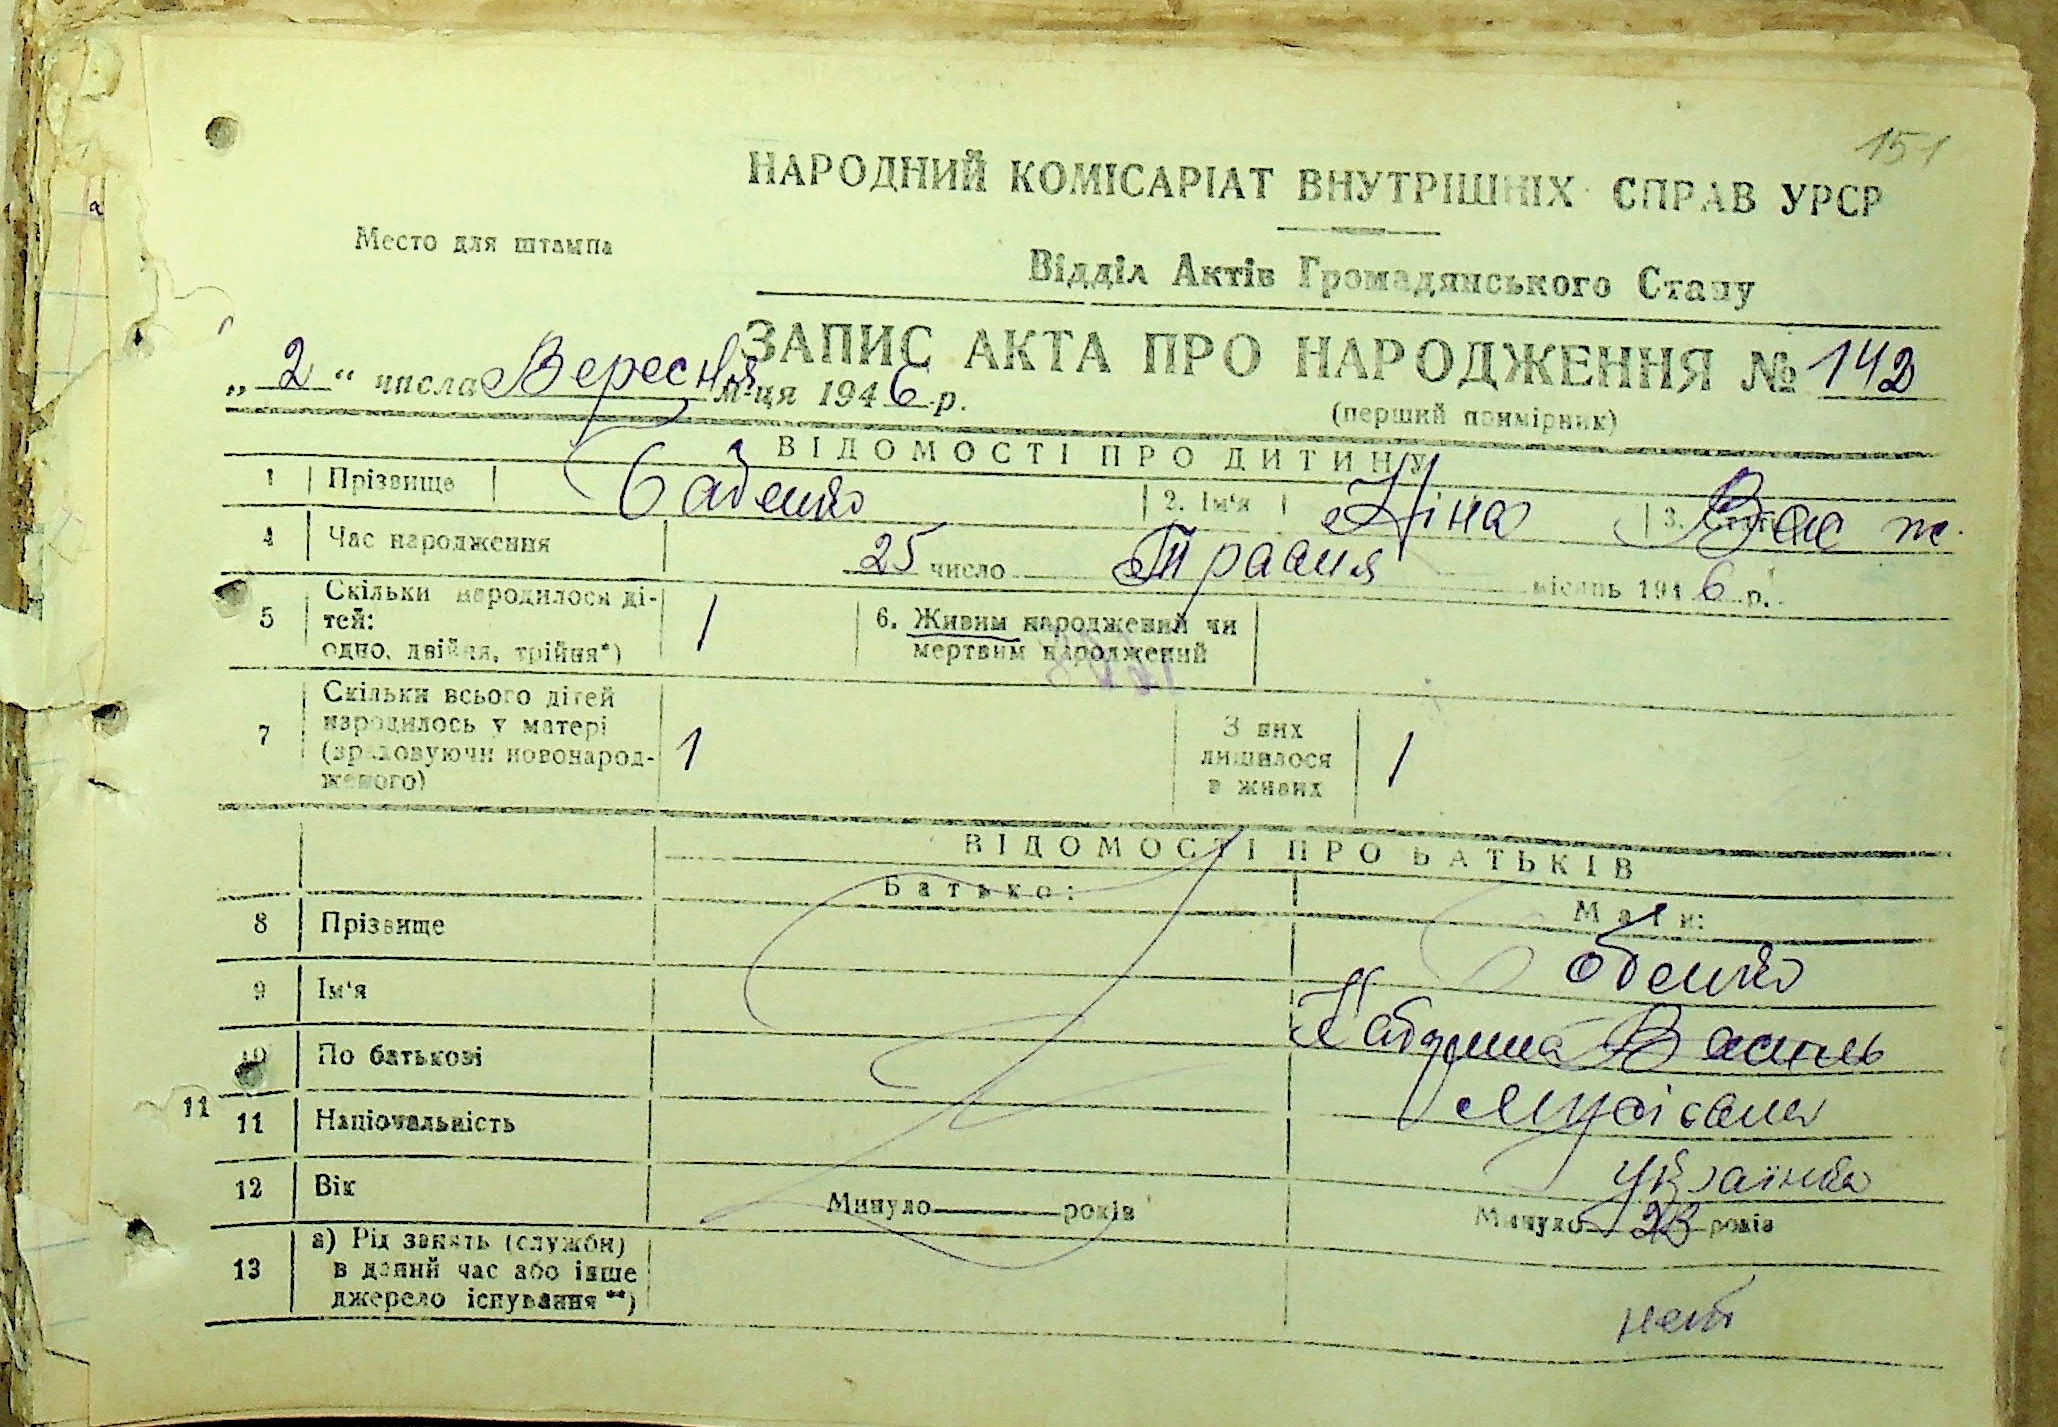 151
НАРОДНИЙ КОМІСАРІАТ ВНУТРІШНІХ СПРАВ УРСР
Место для штампа
Відділ Актів Громадянського Стану
ЗАПИС АКТА ПРО НАРОДЖЕННЯ № 142
„2“ числа Вересня м-ця 1946 р.
(перший примірник)
ВІДОМОСТІ ПРО ДИТИНУ
1 Прізвище 2. Ім'я Ніна 3. Стать ж.
4 Час народження 25 число Травня місяць 1946 р.
5 Скільки народилося ді-
тей:
одно, двійня, трійня*) 1
6. Живим народжений чи
мертвим народжений
7 Скільки всього дітей
народилось у матері
(враховуючи новонарод-
женого) 1
З них
лишилося
в живих 1
ВІДОМОСТІ ПРО БАТЬКІВ
Батько: Мати:
8 Прізвище
9 Ім'я
10 По батькові
11 11 Національність Українка
12 Вік Минуло років Минуло 23 років
13 а) Рід занять (служби)
в даний час або інше
джерело існування**) нет